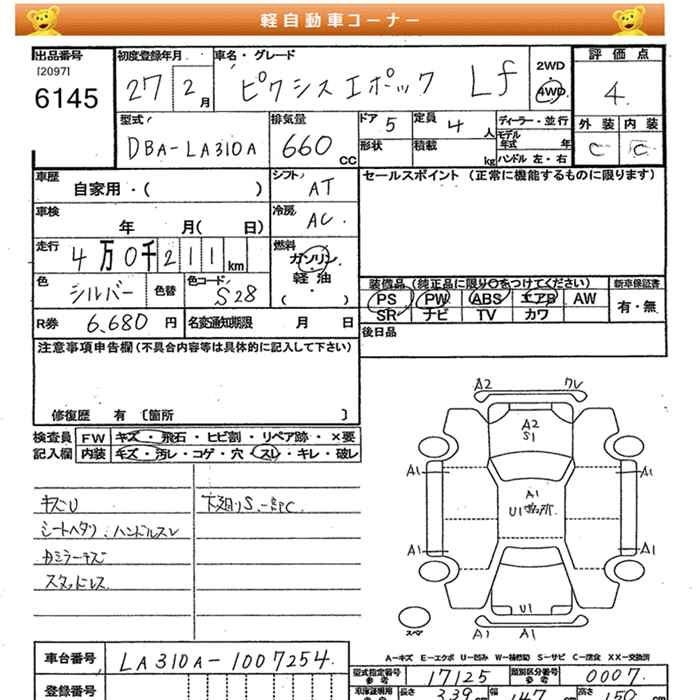 軽自動車コーナー
出品番号
[2097]
6145
初度登録年月
27 2月
車名・グレード
ピクシスエポック Lf
2WD
・
4WD
評価点
4
外装 内装
C C
型式
DBA-LA310A
排気量
660 CC
ドア 5
定員 4 人
形状
積載 kg
ディーラー・並行
モデル年式 年
ハンドル 左・右
車歴
自家用・( )
シフト
AT
セールスポイント (正常に機能するものに限ります)
車検
年 月( 日)
冷房
AC
走行
4万0千211km
燃料
ガソリン
・
軽油
・
( )
色
シルバー
色替
色コード
S28
R券 6,680 円
名変通知期限 月 日
装備品 (純正品に限り○をつけてください)
新車保証書
PS PW ABS エアB AW
有・無
SR ナビ TV カワ
後日品
注意事項申告欄(不具合内容等は具体的に記入して下さい)
修復歴 有 [箇所 ]
検査員
記入欄
FW キズ・飛石・ヒビ割・リペア跡・×要
内装 キズ・汚レ・コゲ・穴・スレ・キレ・破レ
キズU
シートヘタリ、ハンドルスレ
カミラーキズ
スタッドレス
下廻りS
A2
A2
S1
A1
A1
A1
U1
A1
A1
U1
A1
A1
スペア
A-キズ E-エクボ U-凹ミ W-補修跡 S-サビ C-腐食 XX-交換済
車台番号
LA310A-1007254
登録番号
型式指定番号
参考
17125
類別区分番号
参考
0007
車庫証明用
参考
長さ 339 cm
幅 147 cm
高さ 150 cm